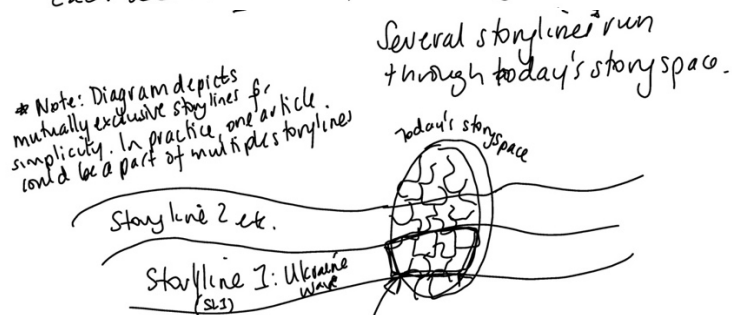 Several storylines run
through today's story space.
* Note: Diagram depicts
mutually exclusive storylines for
simplicity. In practice, one article
could be a part of multiple storylines
today's storyspace
Storyline 2 etc.
Storyline 1: Ukraine
wave
(SL1)